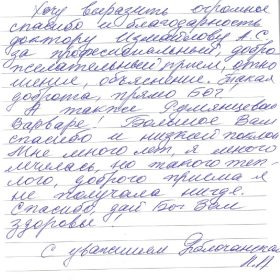 Хочу выразить огромное
спасибо и благодарность
доктору Измайлову А.С.
за профессиональный, добро
желательный прием, отно
шение, объяснение. Такая
доброта, прямо Бог!
А также Румянцевой
Варваре! Большое Вам
спасибо и низкий поклон
Мне много лет, я много
лечилась, но такого теп-
лого, доброго приема я
не получала нигде.
Спасибо, дай Бог Вам
здоровья.
С уважением